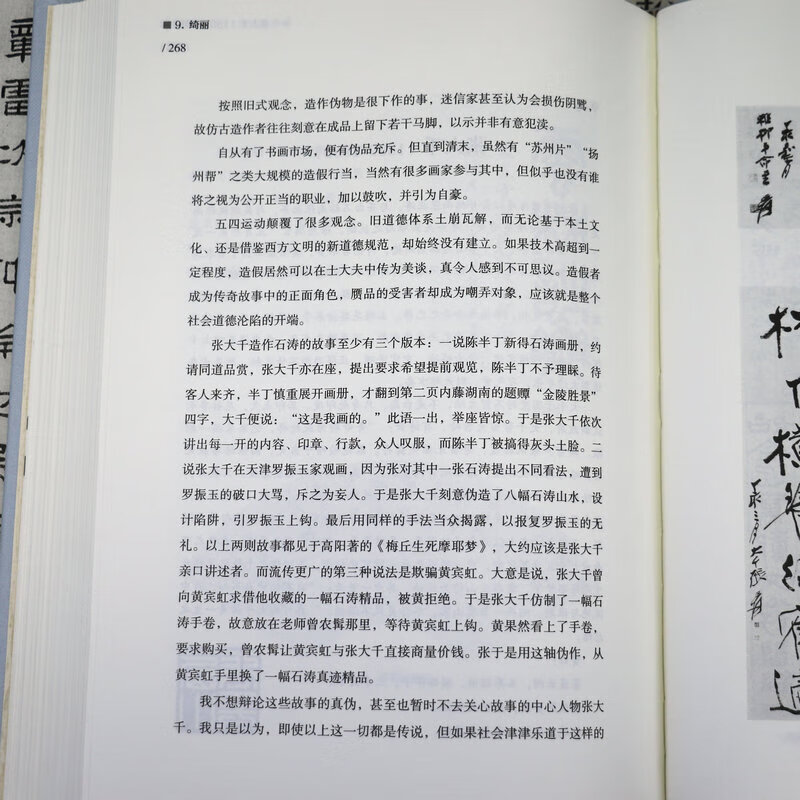 9. 绮丽
/ 268
按照旧式观念，造作伪物是很下作的事，迷信家甚至认为会损伤阴骘，
故仿古造作者往往刻意在成品上留下若干马脚，以示并非有意犯渎。
自从有了书画市场，便有伪品充斥。但直到清末，虽然有“苏州片”“扬
州帮”之类大规模的造假行当，当然有很多画家参与其中，但似乎也没有谁
将之视为公开正当的职业，加以鼓吹，并引为自豪。
五四运动颠覆了很多观念。旧道德体系土崩瓦解，而无论基于本土文
化、还是借鉴西方文明的新道德规范，却始终没有建立。如果技术高超到一
定程度，造假居然可以在士大夫中传为美谈，真令人感到不可思议。造假者
成为传奇故事中的正面角色，赝品的受害者却成为嘲弄对象，应该就是整个
社会道德沦陷的开端。
张大千造作石涛的故事至少有三个版本：一说陈半丁新得石涛画册，约
请同道品赏，张大千亦在座，提出要求希望提前观览，陈半丁不予理睬。待
客人来齐，半丁慎重展开画册，才翻到第二页内藤湖南的题赙“金陵胜景”
四字，大千便说：“这是我画的。”此语一出，举座皆惊。于是张大千依次
讲出每一开的内容、印章、行款，众人叹服，而陈半丁被搞得灰头土脸。二
说张大千在天津罗振玉家观画，因为张对其中一张石涛提出不同看法，遭到
罗振玉的破口大骂，斥之为妄人。于是张大千刻意伪造了八幅石涛山水，设
计陷阱，引罗振玉上钩。最后用同样的手法当众揭露，以报复罗振玉的无
礼。以上两则故事都见于高阳著的《梅丘生死摩耶梦》，大约应该是张大千
亲口讲述者。而流传更广的第三种说法是欺骗黄宾虹。大意是说，张大千曾
向黄宾虹求借他收藏的一幅石涛精品，被黄拒绝。于是张大千仿制了一幅石
涛手卷，故意放在老师曾农髯那里，等待黄宾虹上钩。黄果然看上了手卷，
要求购买，曾农髯让黄宾虹与张大千直接商量价钱。张于是用这轴伪作，从
黄宾虹手里换了一幅石涛真迹精品。
我不想辩论这些故事的真伪，甚至也暂时不去关心故事的中心人物张大
千。我只是以为，即使以上这一切都是传说，但如果社会津津乐道于这样的